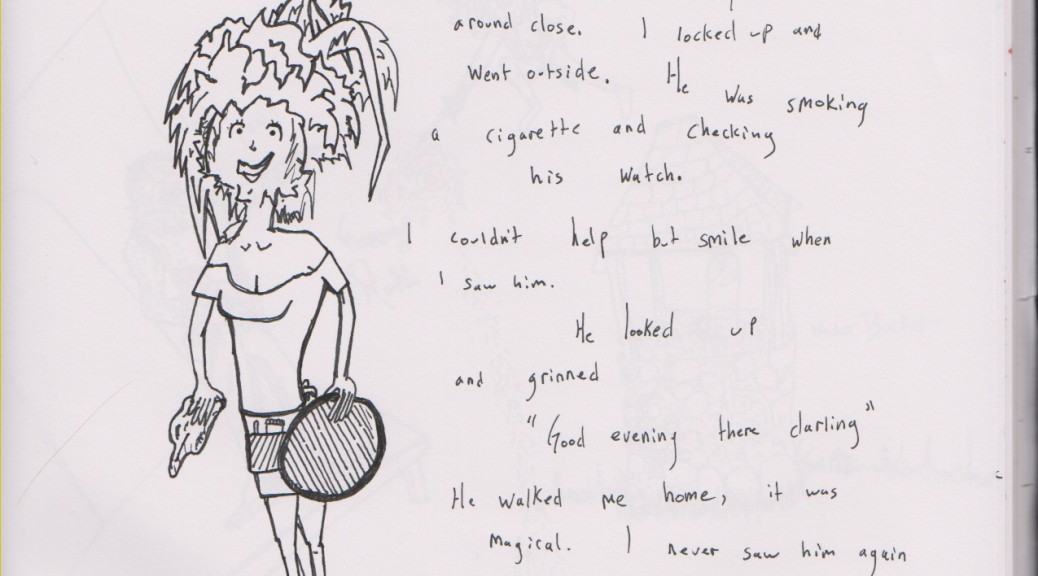 around close. I locked up and
went outside. He was smoking
a cigarette and checking
his watch.
I couldn't help but smile when
I saw him.
He looked up
and grinned
"Good evening there darling"
He walked me home, it was
magical. I never saw him again